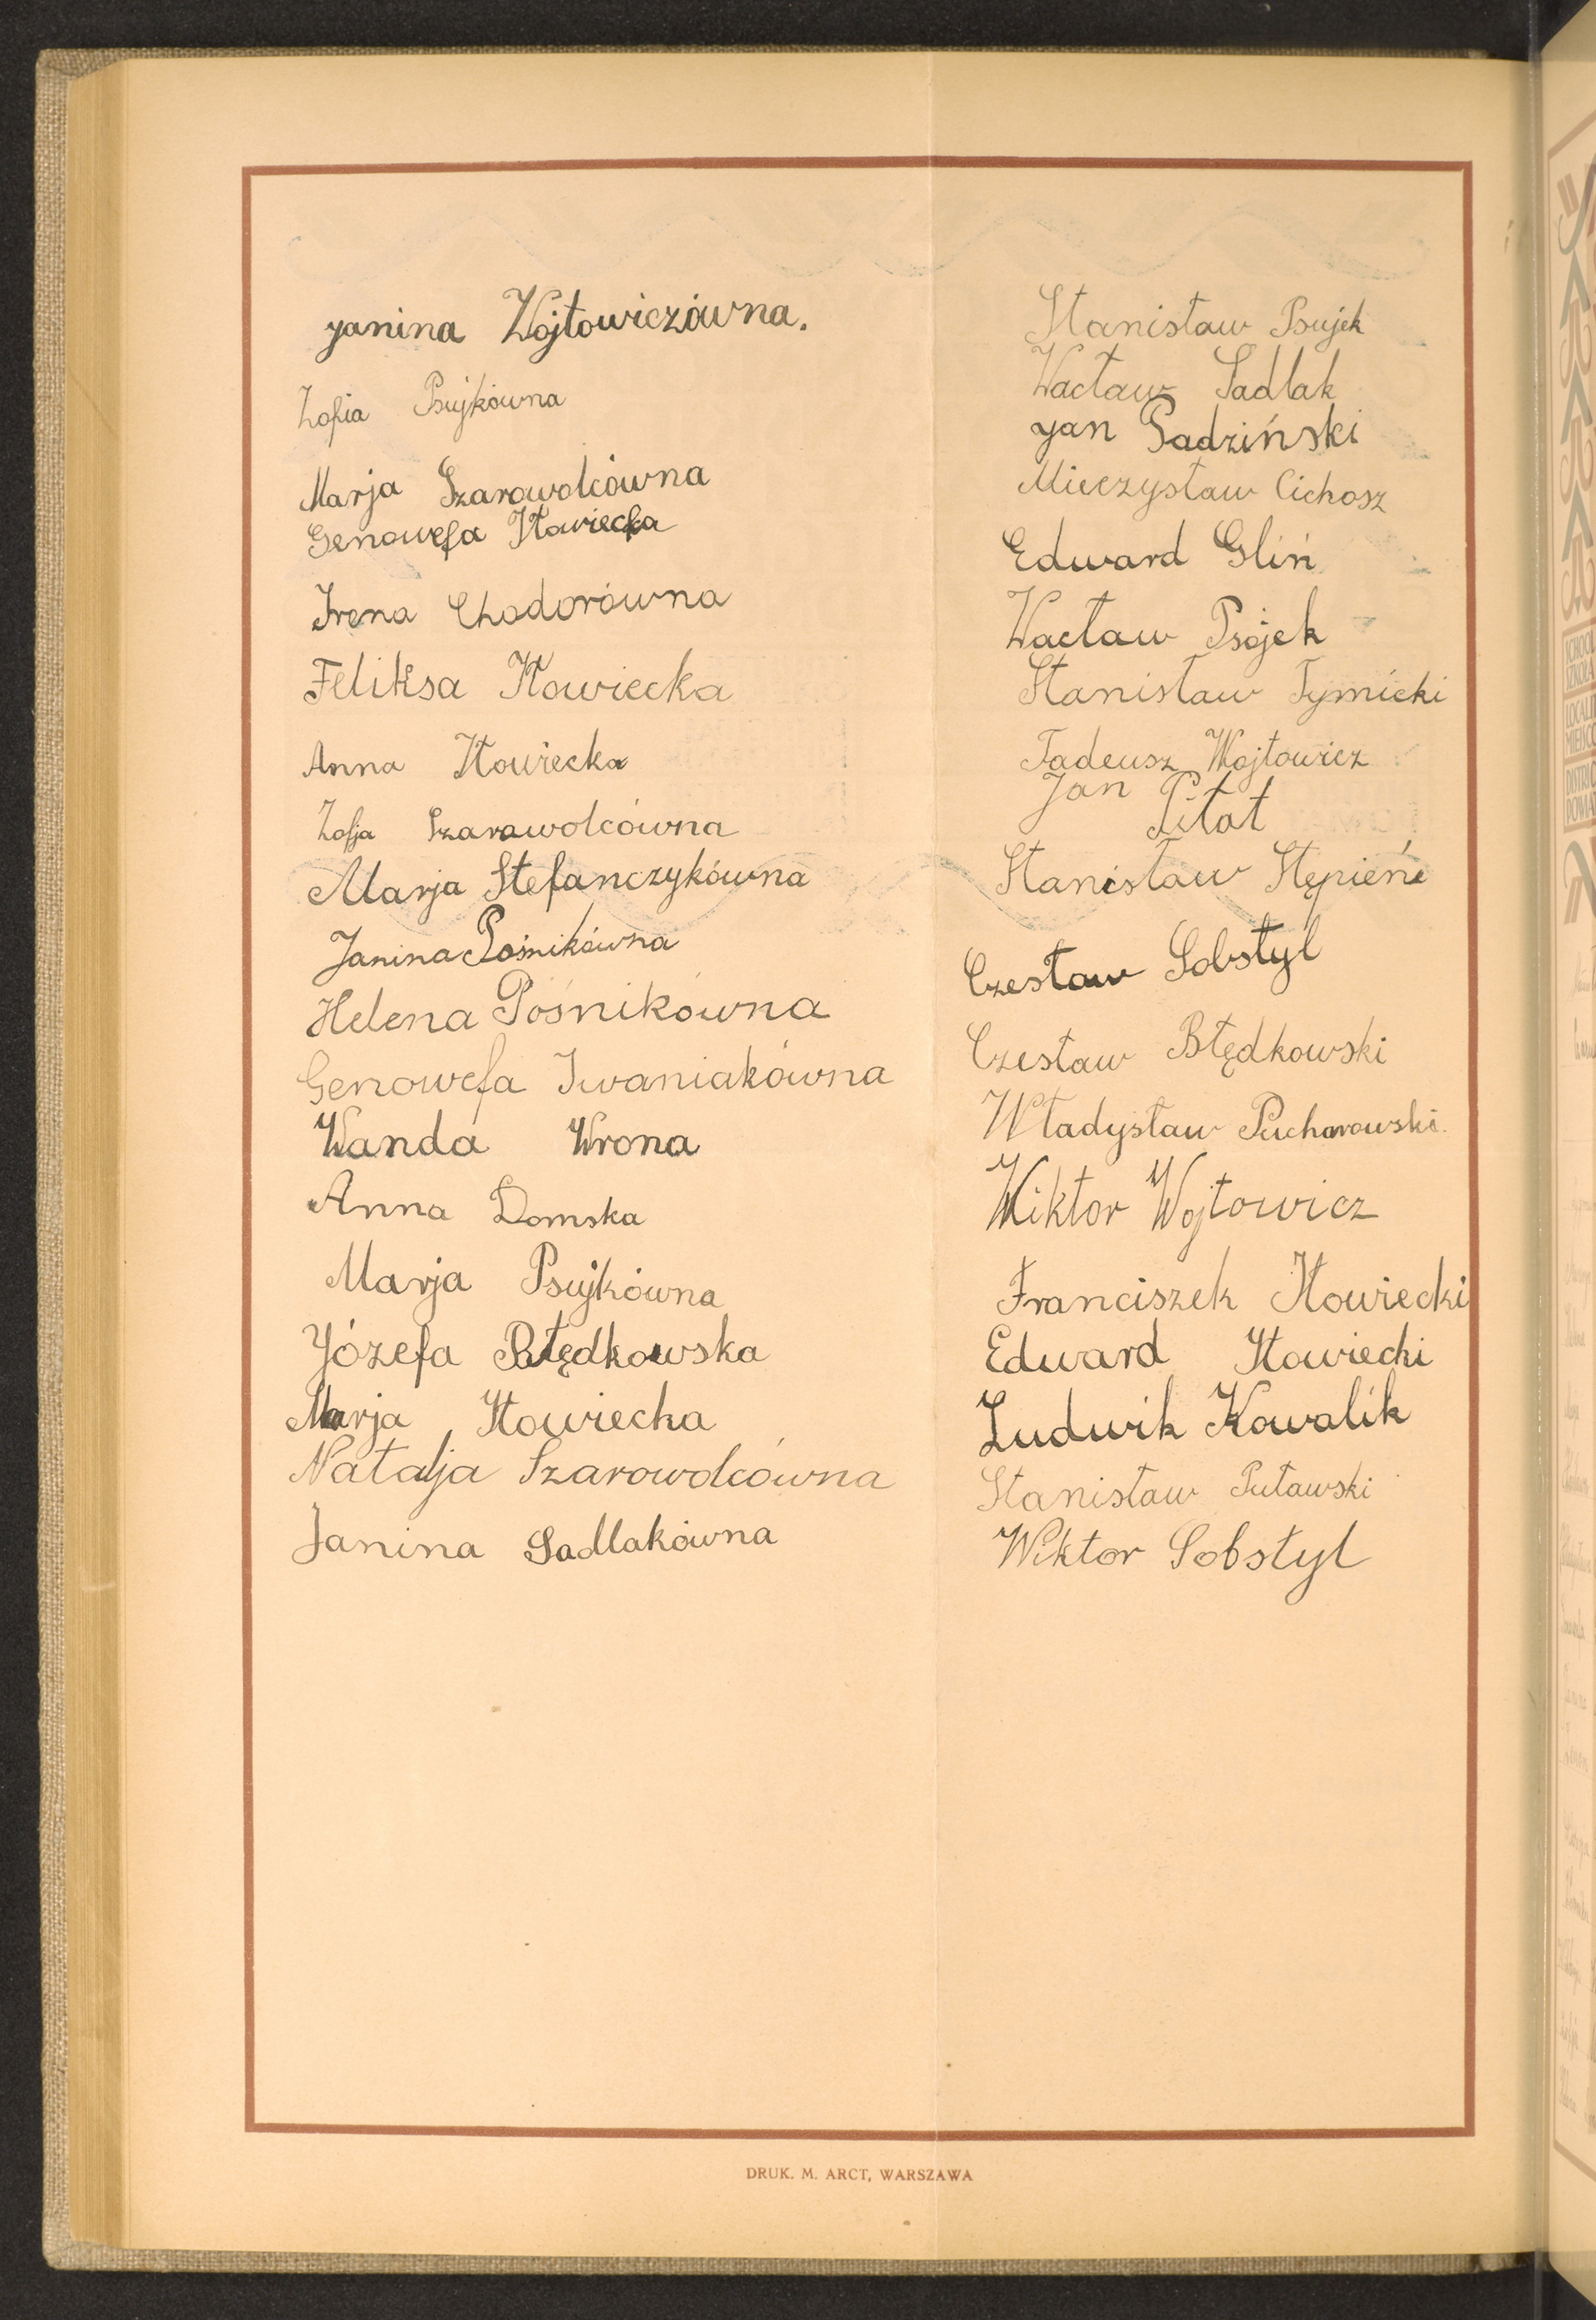 Janina Wojtowiczówna.
Zofia Psujkówna
Marja Szarowolcówna
Genowefa Iłowiecka
Irena Chodorówna
Feliksa Iłowiecka
Anna Iłowiecka
Zofja Szarawolcówna
Marja Stefanczykówna
Janina Pośnikówna
Helena Pośnikówna
Genowefa Iwaniakówna
Wanda Wrona
Anna Domska
Marja Psujkówna
Józefa Błędkowska
Marja Iłowiecka
Natalja Szarowolcówna
Janina Sadlakówna
Stanisław Psujek
Wacław Sadlak
Jan Sadziński
Mieczysław Cichosz
Edward Gliń
Wacław Psojek
Stanisław Tymicki
Tadeusz Wojtowicz
Jan Pitat
Stanisław Stępień
Czesław Sobstyl
Czesław Błędkowski
Władysław Pucharowski.
Wiktor Wojtowicz
Franciszek Iłowiecki
Edward Iłowiecki
Ludwik Kowalik
Stanisław Puławski
Wiktor Sobstyl
DRUK. M. ARCT, WARSZAWA